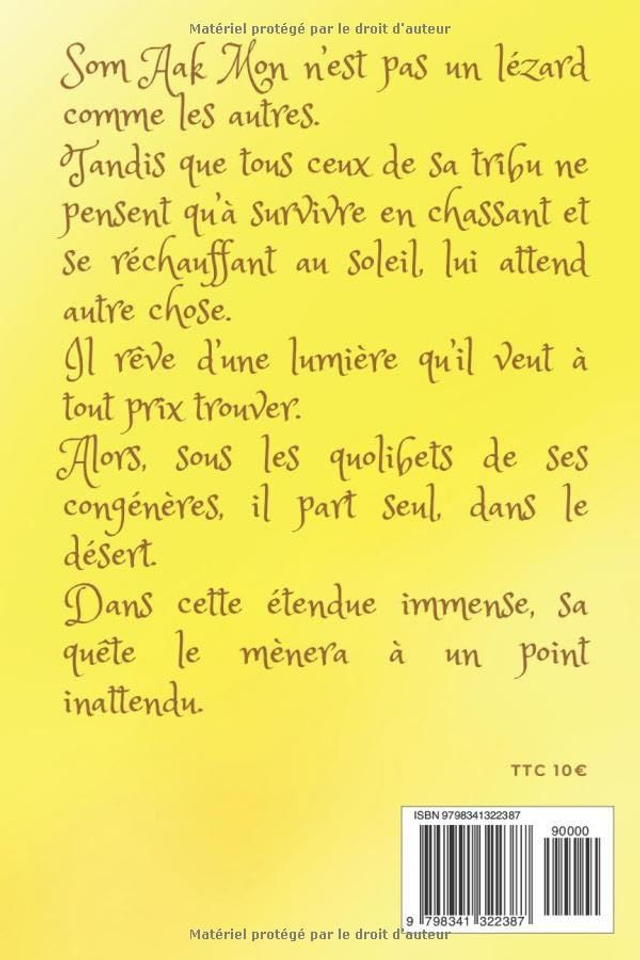 Matériel protégé par le droit d'auteur
Som Aak Mon n'est pas un lézard
comme les autres.
Tandis que tous ceux de sa tribu ne
pensent qu'à survivre en chassant et
se réchauffant au soleil, lui attend
autre chose.
Il rêve d'une lumière qu'il veut à
tout prix trouver.
Alors, sous les quolibets de ses
congénères, il part seul, dans le
désert.
Dans cette étendue immense, sa
quête le mènera à un point
inattendu.
TTC 10€
ISBN 9798341322387
90000
9 798341 322387
Matériel protégé par le droit d'auteur